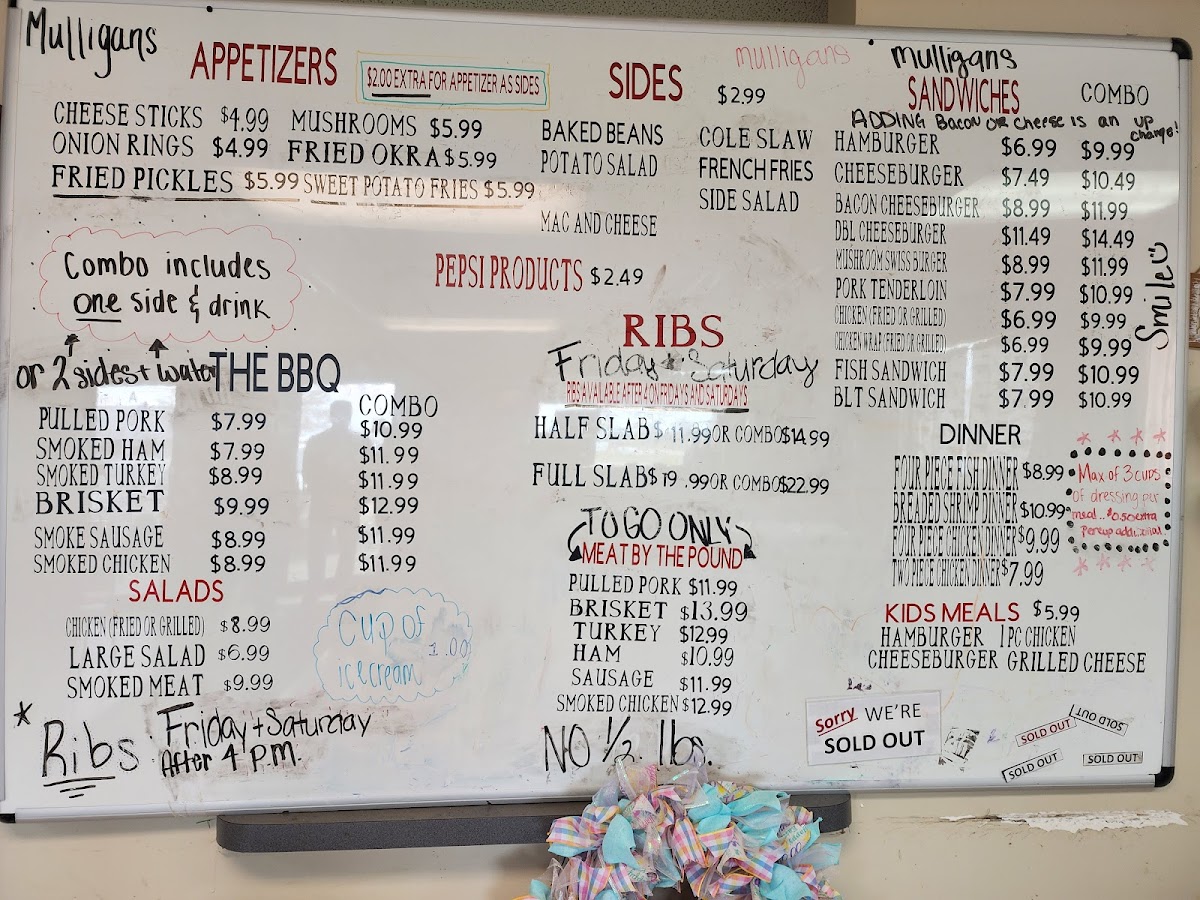 Mulligans
APPETIZERS
$2.00 EXTRA FOR APPETIZER AS SIDES
CHEESE STICKS $4.99 MUSHROOMS $5.99
ONION RINGS $4.99 FRIED OKRA $5.99
FRIED PICKLES $5.99 SWEET POTATO FRIES $5.99
SIDES $2.99
mulligans
BAKED BEANS COLE SLAW
POTATO SALAD FRENCH FRIES
SIDE SALAD
MAC AND CHEESE
mulligans
SANDWICHES COMBO
ADDING Bacon OR cheese is an up charge!
HAMBURGER $6.99 $9.99
CHEESEBURGER $7.49 $10.49
BACON CHEESEBURGER $8.99 $11.99
DBL CHEESEBURGER $11.49 $14.49
MUSHROOM SWISS BURGER $8.99 $11.99
PORK TENDERLOIN $7.99 $10.99
CHICKEN (FRIED OR GRILLED) $6.99 $9.99
CHICKEN WRAP (FRIED OR GRILLED) $6.99 $9.99
FISH SANDWICH $7.99 $10.99
BLT SANDWICH $7.99 $10.99
Smile
Combo includes
one side & drink
or 2 sides + water
PEPSI PRODUCTS $2.49
THE BBQ
COMBO
PULLED PORK $7.99 $10.99
SMOKED HAM $7.99 $11.99
SMOKED TURKEY $8.99 $11.99
BRISKET $9.99 $12.99
SMOKE SAUSAGE $8.99 $11.99
SMOKED CHICKEN $8.99 $11.99
RIBS
Friday + Saturday
RIBS AVAILABLE AFTER 4 ON FRIDAYS AND SATURDAYS
HALF SLAB $11.99 OR COMBO $14.99
FULL SLAB $19.99 OR COMBO $22.99
DINNER
FOUR PIECE FISH DINNER $8.99
BREADED SHRIMP DINNER $10.99
FOUR PIECE CHICKEN DINNER $9.99
TWO PIECE CHICKEN DINNER $7.99
Max of 3 cups
of dressing per
meal... $0.50 extra
per cup additional.
SALADS
CHICKEN (FRIED OR GRILLED) $8.99
LARGE SALAD $6.99
SMOKED MEAT $9.99
Cup of
icecream 1.00
TO GO ONLY
MEAT BY THE POUND
PULLED PORK $11.99
BRISKET $13.99
TURKEY $12.99
HAM $10.99
SAUSAGE $11.99
SMOKED CHICKEN $12.99
NO 1/2 lbs.
KIDS MEALS $5.99
HAMBURGER 1 PC CHICKEN
CHEESEBURGER GRILLED CHEESE
* Ribs Friday + Saturday
After 4 p.m.
Sorry WE'RE
SOLD OUT
SOLD OUT
SOLD OUT
SOLD OUT
SOLD OUT